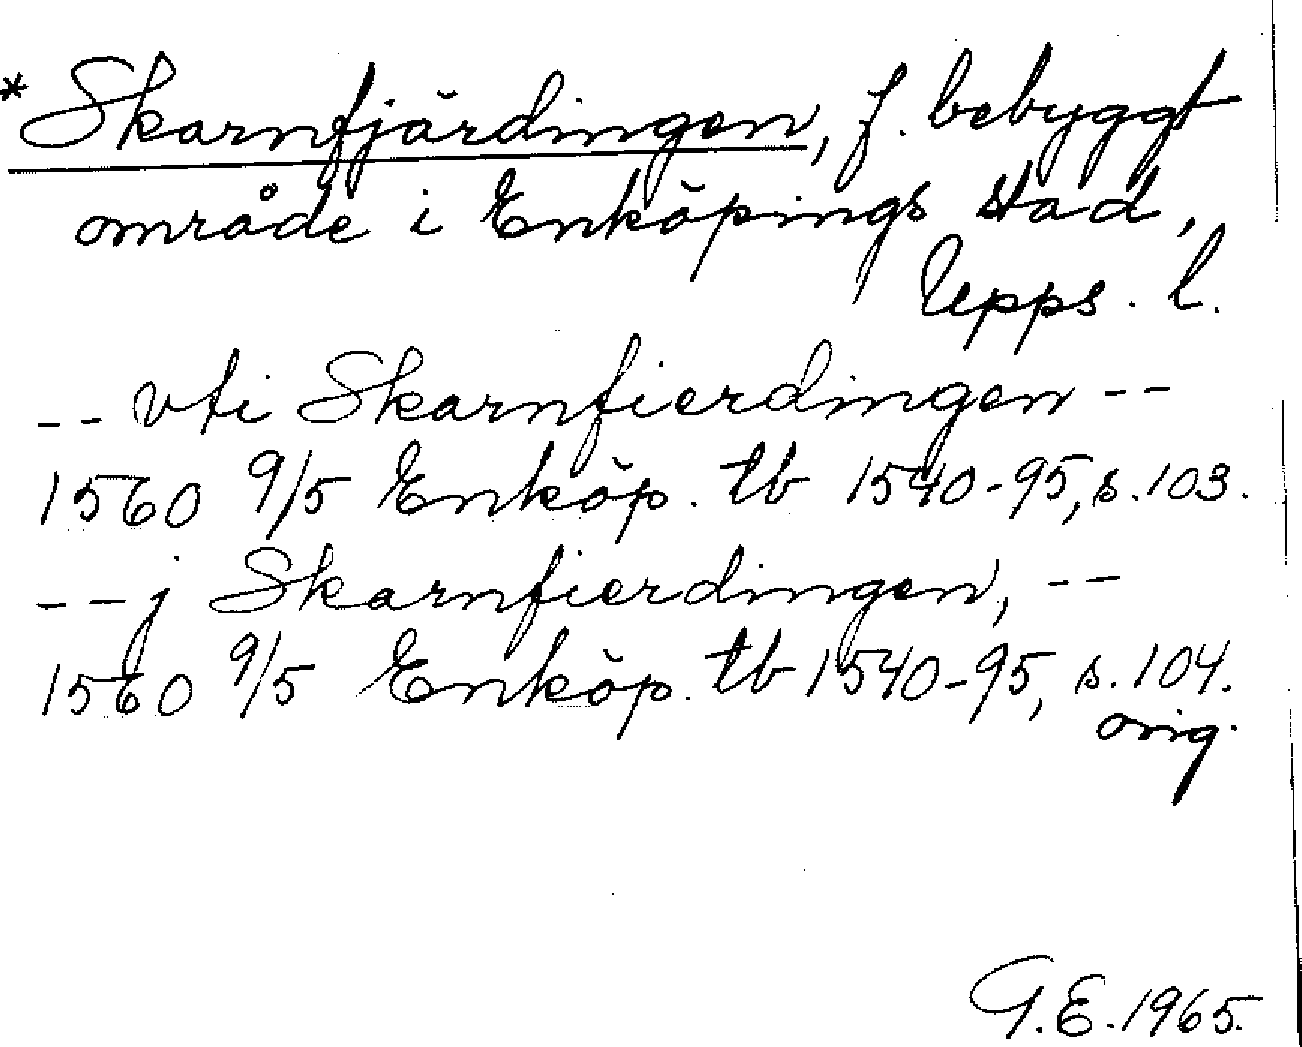 * Skarnfjärdingen, f. bebyggt
område i Enköpings stad,
Upps. l.
-- vti Skarnfierdingen --
1560 9/5 Enköp. tb 1540-95, s. 103.
-- j Skarnfierdingen, --
1560 9/5 Enköp. tb 1540-95, s. 104.
orig.
G.E. 1965.